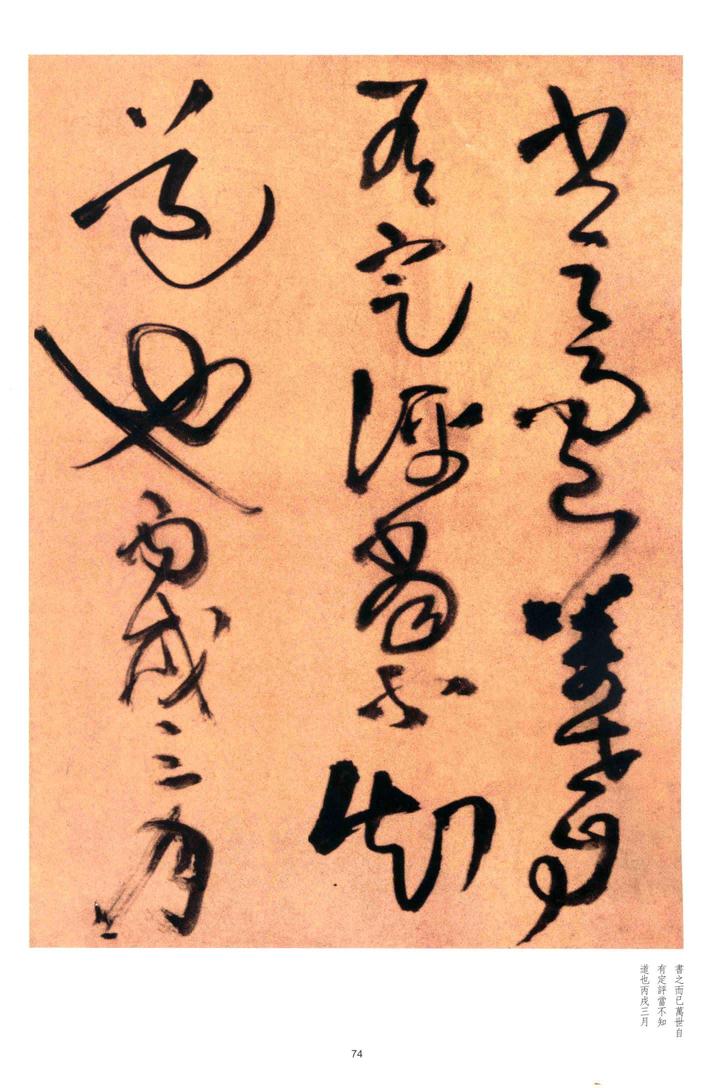 書之而已萬世自
有定評當不知
道也丙戌三月
書之而已萬世自
有定評當不知
道也丙戌三月
74